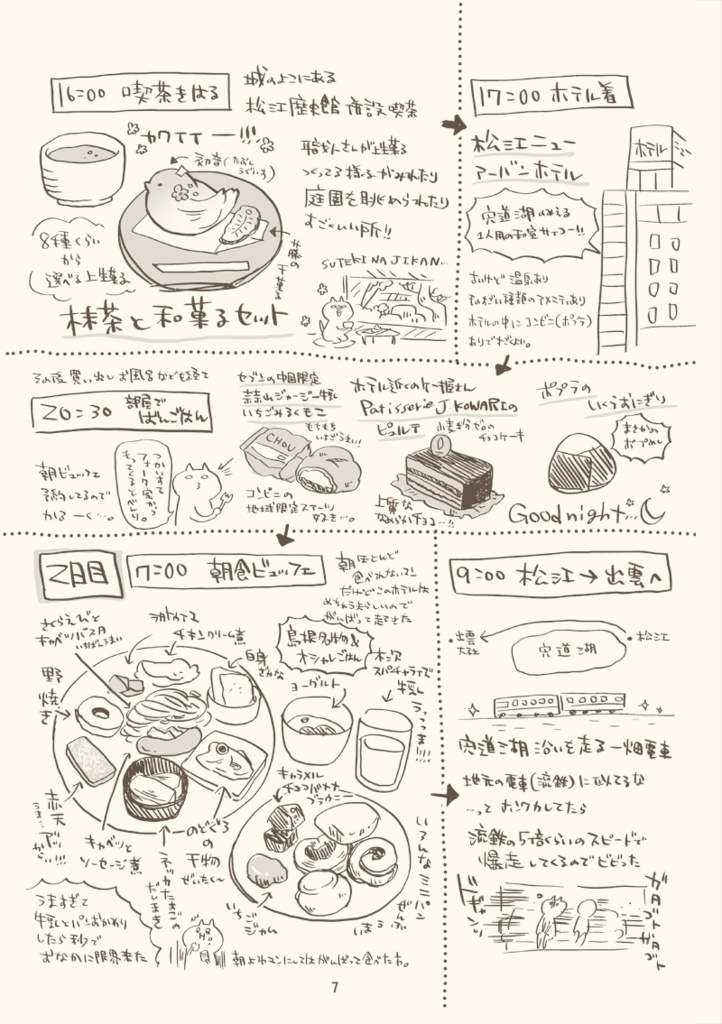 16:00 喫茶きはる
城のよこにある
松江歴史館併設喫茶
カワイイー!!!
初春(たぶんうぐいす)
8種くらい
から
選べる上生菓子
抹茶と和菓子セット
職人さんが上生菓子
つくってる様子がみれたり
庭園を眺められたり
すごくいい所!!
SUTEKINAJIKAN...
17:00 ホテル着
松江ニュー
アーバンホテル
ホテル
宍道湖のみえる
1人用の和室サイコー!!
ホテルの中にコンビニ(ポプラ)
その夜、買い出しお風呂などを経て
20:30 部屋で
ばんごはん
朝ビュッフェ
予約してるので
かる〜く…。
セブンの中国限定
蒜山ジャージー牛乳
いちごみるくもこ
もちもち
CHOU
コンビニの
地域限定スイーツ
すき…。
ホテル近くのケーキ屋さん
Patisserie J.KOWARIの
ピュルテ
小麦粉ゼロの
チョコケーキ
上質な
なめらかチョコ…!!
ポプラの
いくらおにぎり
まさかの
ポプめし
Good night...
2日目
7:00 朝食ビュッフェ
朝ほとんど
食べれないマン
だけどこのホテルは
めちゃうまらしいので
がんばって起きた
島根名物&
オシャレごはん
さくらえびと
キャベツパスタ
チキンクリーム煮
白身
ざかな
野焼き
赤天
キャベツと
ソーセージ煮
のどぐろ
の
干物
ぜいたく〜
ヨーグルト
木次
パスチャライズ
牛乳
うっっま!!!!
キャラメル
チョコバナナ
ブラウニー
いちご
ジャム
いろんなミニパン
ぜんぶ
うまい
うますぎて
牛乳とパンおかわり
したら秒で
おなかに限界来た
朝よわマンにしてはがんばって食べた方。
9:00 松江→出雲へ
出雲
大社
宍道湖
松江
宍道湖沿いを走る一畑電車
地元の電車(流鉄)に似てるな
…って おもってたら
流鉄の5倍くらいのスピードで
爆走してくるのでビビった
ドギャン
ガタゴトガタゴト
7